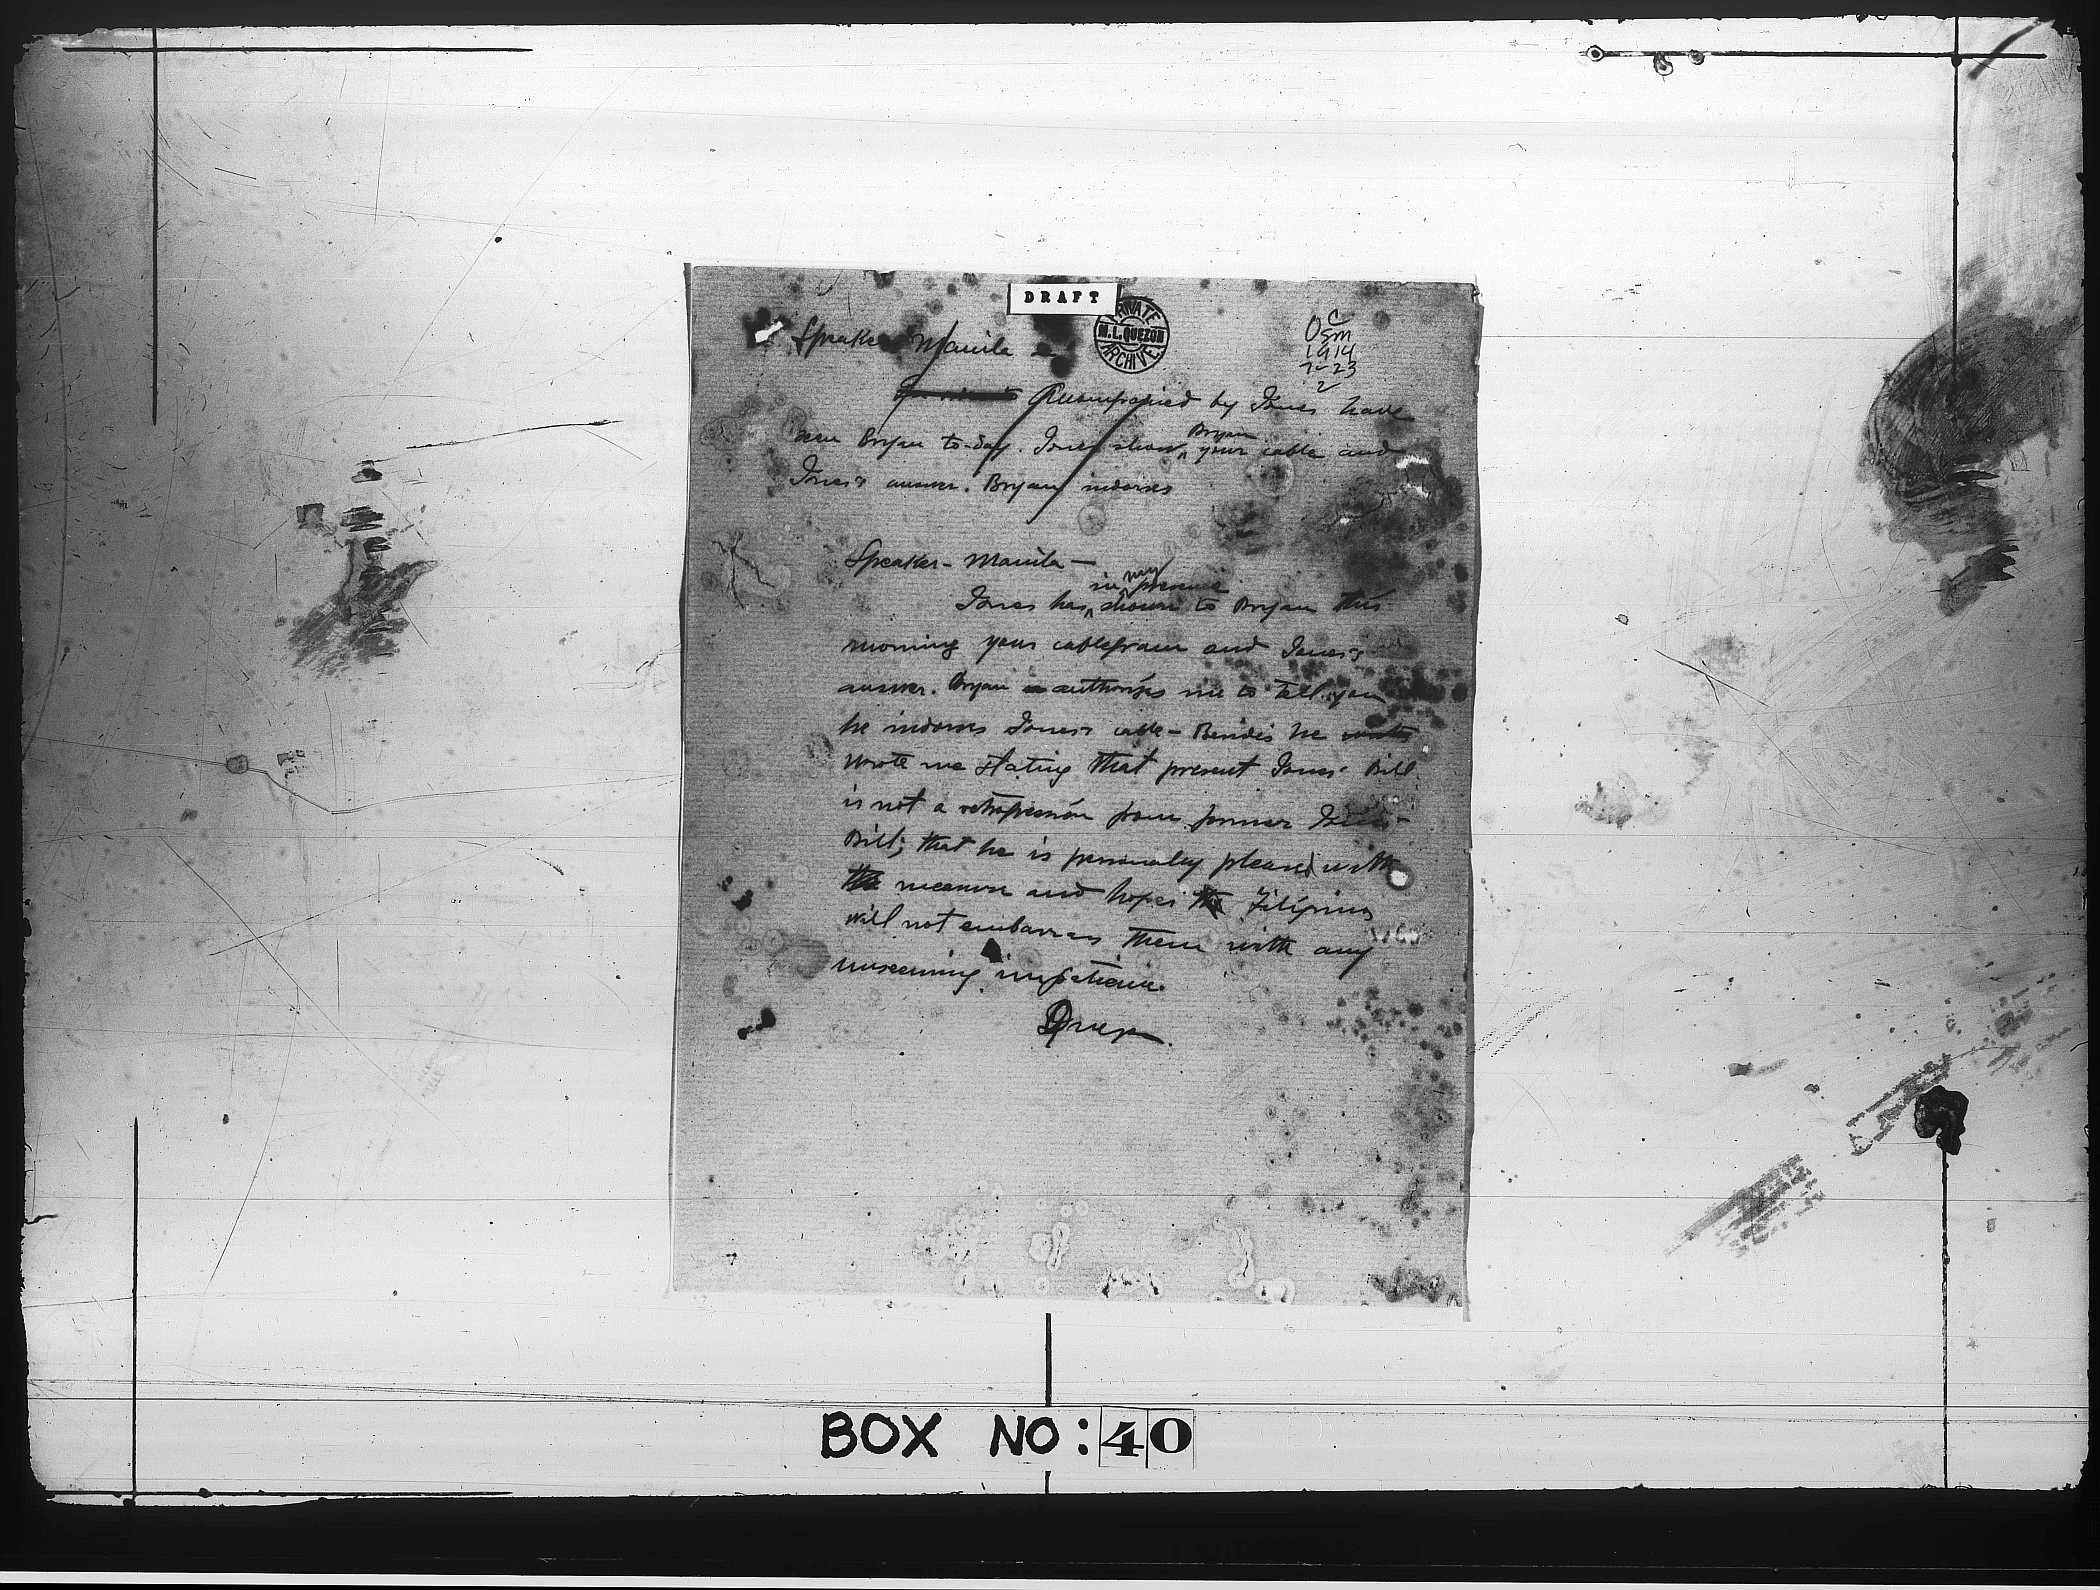 DRAFT
PRIVATE
M. L. QUEZON
ARCHIVE
C
Osm
1914
7-23
2
Speaker Manila
Accompanied by Jones have
seen Bryan to-day. Jones shown Bryan your cable and
Jones's answer. Bryan indorses
Speaker - Manila -
Jones has in my presence shown to Bryan this
morning your cablegram and Jones's
answer. Bryan authorizes me to tell you
he indorses Jones's cable - Besides he
wrote me stating that present Jones Bill
is not a retrogression from former Jones
Bill; that he is personally pleased with
the measure and hopes the Filipinos
will not embarrass them with any
unseeming impatience.
BOX NO: 40